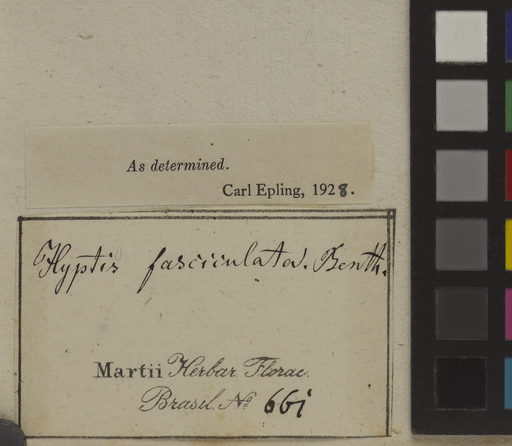 As determined.
Carl Epling, 1928.
Hyptis fasciculata. Benth.
Martii Herbar. Florae
Brasil. No 661